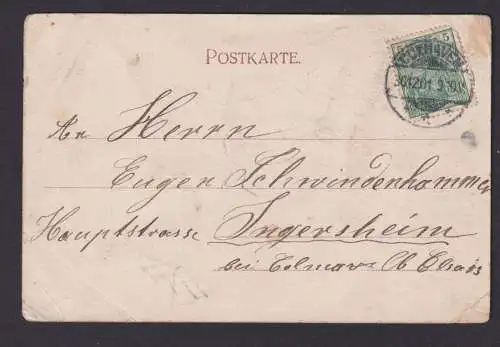 POSTKARTE.
5
CUXHAVEN
An Herrn
Eugen Schwindenhammer
Hauptstrasse Ingersheim
bei Colmar Ob Elsass